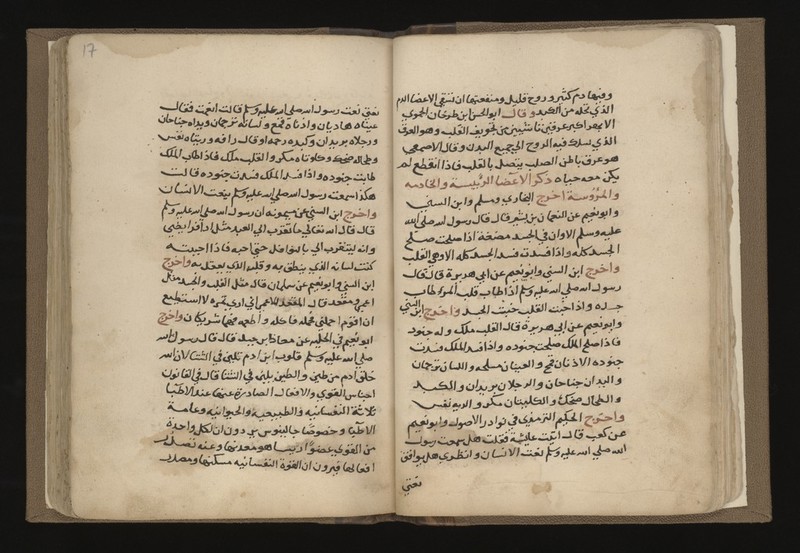 وفيها دم كثير وروح قليل ومنفعتها ان تسقي الاعضا الدم
الذي تحمله من الكبد وقال ابو الحسن ابن طرخان الحموي
الابهر اكبر عرقين ناشيين من تجويف القلب وهو العرق
الذي تسلك فيه الروح الي جميع البدن وقال الاصمعي
هو عرق باطن الصلب يتصل بالقلب فاذا انقطع لم
يكن معه حياه ذكر الاعضا الرئيسة والخادمه
والمرؤسة اخرج البخاري ومسلم وابن السني
وابو نعيم عن النعمان بن بشير قال قال رسول الله صلي الله
عليه وسلم الا وان في الجسد مضغة اذا صلحت صلح
الجسد كله واذا فسدت فسد الجسد كله الا وهي القلب
واخرج ابن السني وابو نعيم عن ابي هريرة قال قال
رسول الله صلي الله عليه وسلم اذا طاب قلب المرء طاب
جسده واذا خبث القلب خبث الجسد واخرج ابن السني
وابو نعيم عن ابي هريرة قال القلب ملك وله جنود
فاذا صلح الملك صلحت جنوده واذا فسد الملك فسدت
جنوده الاذنان قمع والعينان مسلحه واللسان ترجمان
واليدان جناحان والرجلان بريدان والكبد
والطحال ضحك والكليتان مكر والريه نفس
واخرج الحكيم الترمذي في نوادر الاصول وابو نعيم
عن كعب قال اتيت عايشة فقلت هل سمعت رسول
الله صلي الله عليه وسلم نعت الانسان وانظري هل يوافق
نعتي
17
نعتي نعت رسول الله صلي الله عليه وسلم قالت انعت فقال
عيناه هاديان واذناه قمع ولسانه ترجمان ويداه جناحان
ورجلاه بريدان وكبده رحمه او قال رافه وريتاه نفس
وطحاله ضحك وكلوتاه مكر والقلب ملك فاذا طاب الملك
طابت جنوده واذا فسد الملك فسدت جنوده قالت
هكذا سمعت رسول الله صلي الله عليه وسلم ينعت الانسان
واخرج ابن السني عن ميمونه ان رسول الله صلي الله عليه وسلم
قال قال الله تعالي ما تقرب الي العبد بمثل ادا فرايضي
وانه ليتقرب الي بالنوافل حتي احبه فاذا احببته
كنت لسانه الذي ينطق به وقلبه الذي يعقل به واخرج
ابن السني وابو نعيم عن سلمان قال مثل القلب والجسد مثل
اعمي ومقعد قال المقعد للاعمي اني اري تمره لا استطيع
ان اقوم احملني فحمله فاكله واطعمه فهما شريكان واخرج
ابو نعيم في الحليه عن معاذ بن جبل قال قال رسول الله
صلي الله عليه وسلم قلوب ابن ادم تلين في الشتا لان الله
خلق ادم من طين والطين يلين في الشتا قال في القانون
اجناس القوي والافعال الصادرة عنها عند الاطبا
ثلاثة النفسانيه والطبيعيه والحيوانيه وعامة
الاطبا وخصوصا جالينوس يرون ان لكل واحدة
من القوي عضوا رئيسا هو معدنها وعنه تصدر
افعالها فيرون ان القوة النفسانيه مسكنها ومصدر